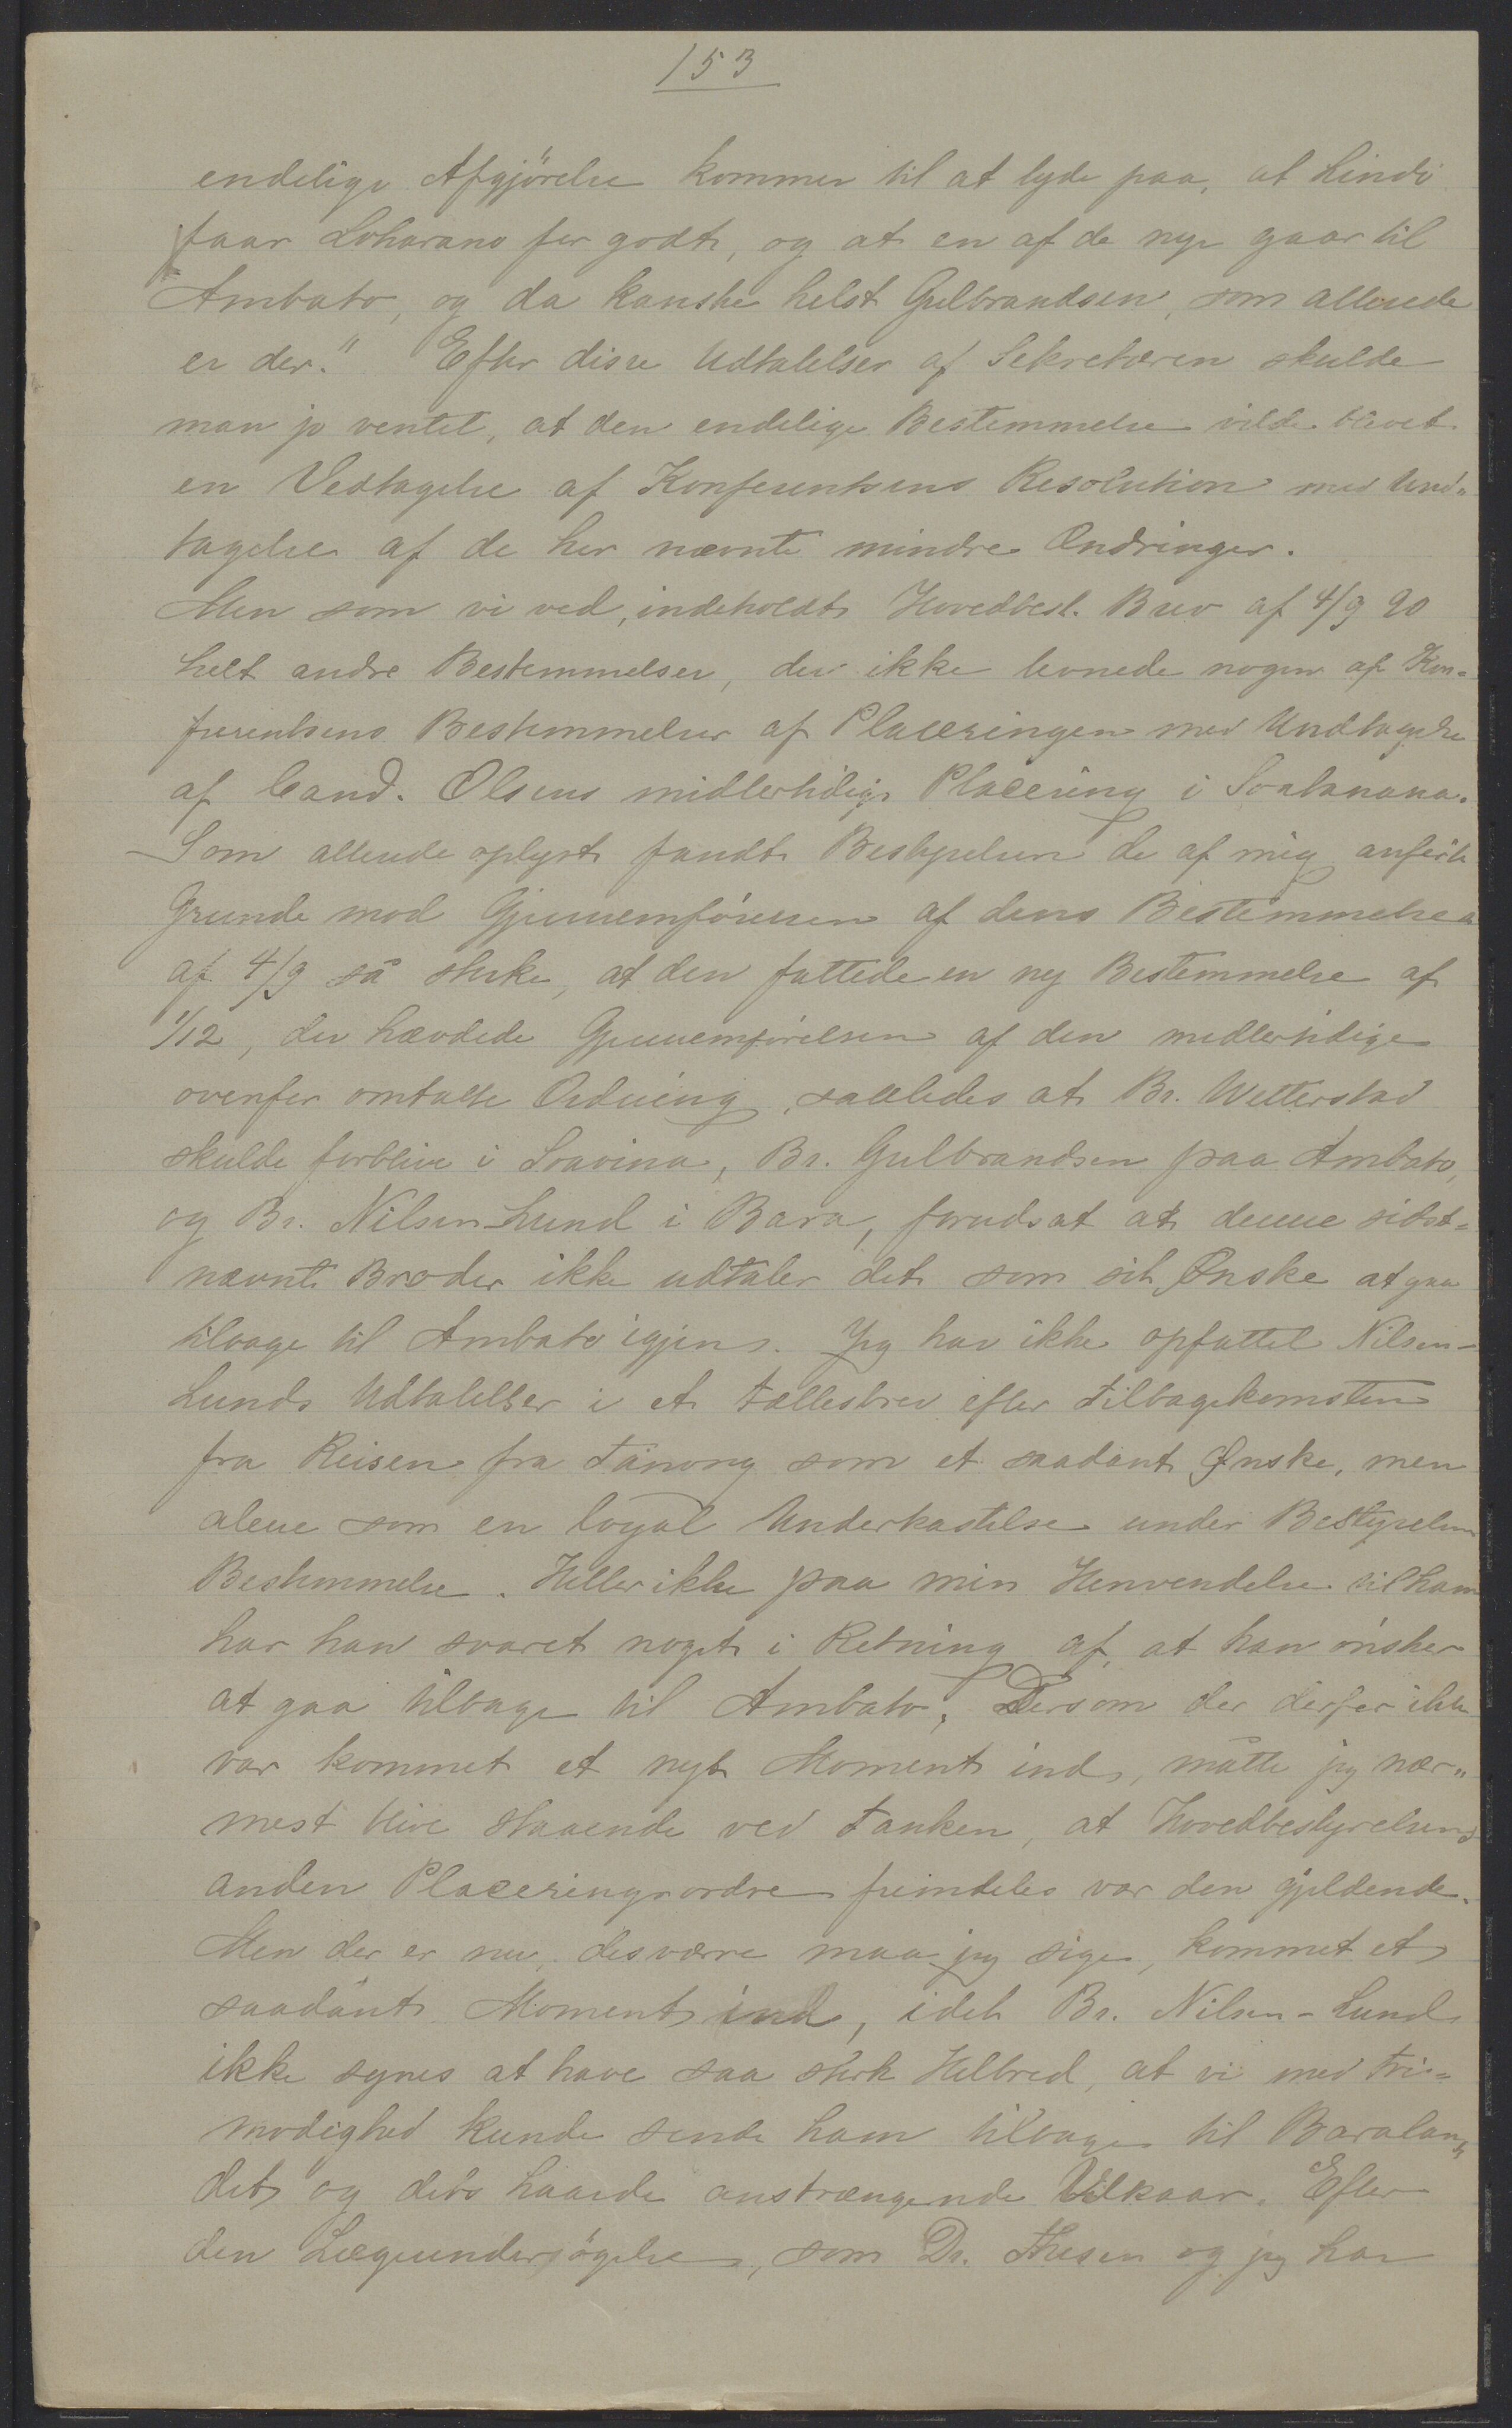 153
endelige Afgjörelse kommer til at lyde paa, at Lindö
faar Loharano for godt, og at en af de nye gaar til
Ambato, og da kanske helst Gulbrandsen, som allerede
er der." Efter disse Udtalelser af Sekretæren skulde
man jo ventet, at den endelige Bestemmelse vilde blevet
en Vedtagelse af Konferentsens Resolution med Und-
tagelse af de her nævnte mindre Ændringer.
Men som vi ved, indeholdt Hovedbest. Brev af 4/9 90
helt andre Bestemmelser, der ikke levnede nogen af Kon-
ferentsens Bestemmelser af Placeringen med Undtagelse
af Cand. Olsens midlertidige Placering i Soatanana.
Som allerede oplyst fandt Bestyrelsen de af mig anförte
Grunde mod Gjennemförelsen af dens Bestemmelse
af 4/9 så sterke, at den fattede en ny Bestemmelse af
1/12, der hævdede Gjennemförelsen af den midlertidige
ovenfor omtalte Ordning, saaledes at Br. Wetterstad
skulde forblive i Soavina, Br. Gulbrandsen paa Ambato,
og Br. Nilsen-Lund i Bara, forudsat at denne sidst-
nævnte Broder ikke udtaler det som sit Ønske at gaa
tilbage til Ambato igjen. Jeg har ikke opfattet Nilsen-
Lunds Udtalelser i et Fællesbrev efter Tilbagekomsten
fra Reisen fra Tanong som et saadant Ønske, men
alene som en loyal Underkastelse under Bestyrelsens
Bestemmelse. Heller ikke paa min Henvendelse til ham
har han svaret noget i Retning af, at han önsker
at gaa tilbage til Ambato. Dersom der derfor ikke
var kommet et nyt Moment ind, måtte jeg nær-
mest blive staaende ved Tanken, at Hovedbestyrelsens
anden Placeringsordre fremdeles var den gjeldende.
Men der er nu, desværre maa jeg sige, kommet et
saadant Moment ind, idet Br. Nilsen-Lund
ikke synes at have saa sterk Helbred, at vi med Fri-
modighed kunde sende ham tilbage til Baralan-
det og dets haarde anstrængende Vilkaar. Efter
den Lægeundersögelse, som Dr. Thesen og jeg har